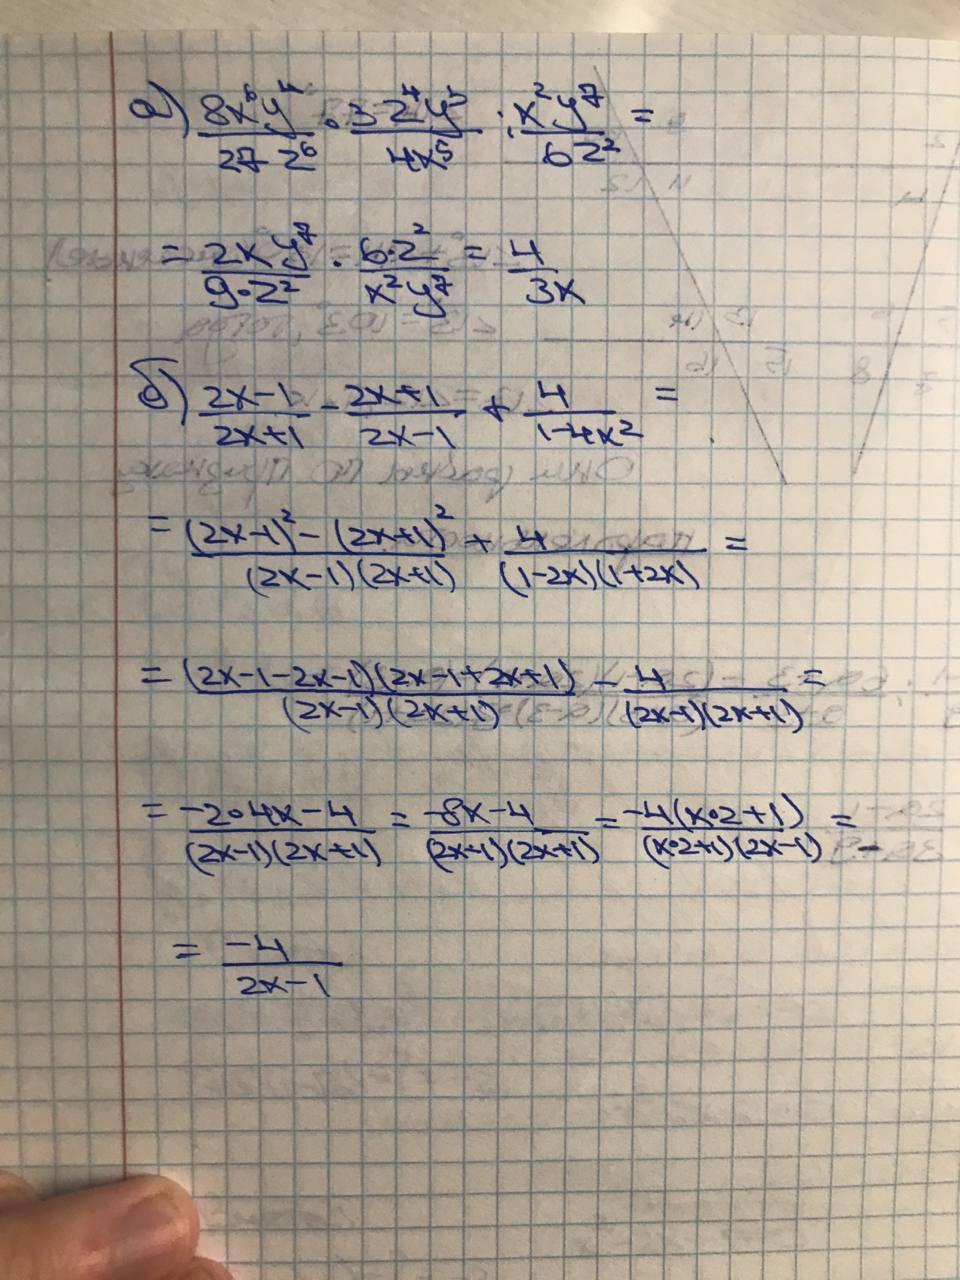 а) 8x⁶y⁴/27z⁶ · 3z⁴y³/4x⁵ : x²y⁷/6z² =
= 2xy⁷/9·z² · 6·z²/x²y⁷ = 4/3x
б) 2x-1/2x+1 - 2x+1/2x-1 + 4/1-4x² =
= (2x-1)² - (2x+1)²/(2x-1)(2x+1) + 4/(1-2x)(1+2x) =
= (2x-1-2x-1)(2x-1+2x+1)/(2x-1)(2x+1) - 4/(2x-1)(2x+1) =
= -2·4x-4/(2x-1)(2x+1) = -8x-4/(2x-1)(2x+1) = -4(x·2+1)/(x·2+1)(2x-1) =
= -4/2x-1